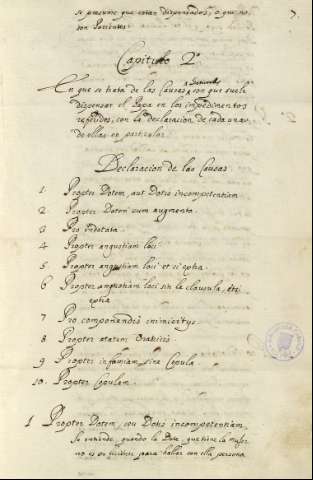 se presume que estan dispensados, o que no
son Parientes.
7
Capitulo 2º
En que se trata de las Causas con que suele
dispensar el Papa en los impedimentos
referidos, con la declaracion de cada una
de ellas en particular
Declaracion de las Causas
1 Propter Dotem, aut Dotis incompetentiam
2 Propter Dotem cum augmento.
3 Pro indotata
4 Propter angustiam loci
5 Propter angustiam loci et si extra
6 Propter angustiam loci sin la clausula, etsi
extra
7 Pro componendis inimicitijs
8 Propter ætatem Oratricis
9 Propter infamiam, sine Copula
10. Propter Copulam
1 Propter Dotem, seu Dotis incompetentiam,
Se entiende, quando la Dote, que tiene la muger
no es suficiente para hallar con ella persona